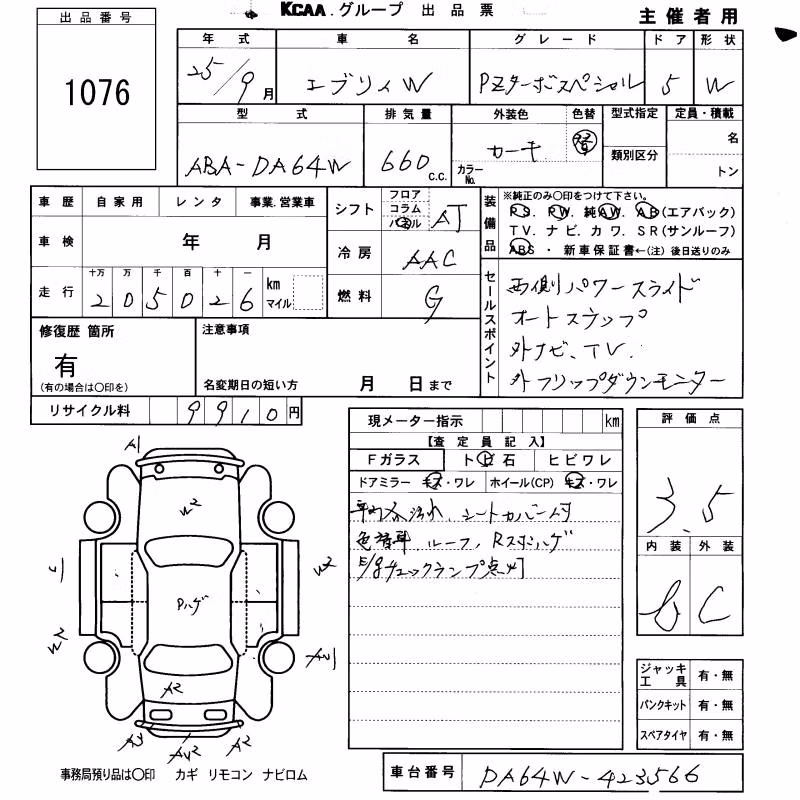 KCAA.グループ 出品票
主催者用
出品番号
1076
年式 車名 グレード ドア 形状
25/9月 エブリイW PZターボスペシャル 5 W
型式 排気量 外装色 色替 型式指定 定員・積載
ABA-DA64W 660 C.C. カーキ 替 類別区分 名
カラーNo. トン
車歴 自家用 レンタ 事業.営業車
車検 年 月
走行 十万 万 千 百 十 一 km マイル
205026
シフト フロア コラム パネル AT
冷房 AAC
燃料 G
装備品
※純正のみ〇印をつけて下さい。
PS. PW. 純AW. AB(エアバック)
TV. ナビ. カワ. SR(サンルーフ)
ABS・新車保証書←(注)後日送りのみ
セールスポイント
両側パワースライド
オートステップ
外ナビ、TV.
外フリップダウンモニター
修復歴 箇所
有
(有の場合は〇印を)
注意事項
名変期日の短い方 月 日まで
リサイクル料 9910円
現メーター指示 km
【査定員記入】
Fガラス ト ビ 石 ヒビワレ
ドアミラー キズ・ワレ ホイール(CP) キズ・ワレ
シートカバー付
色替車 ルーフ、Rスポハゲ
E/gチェックランプ点灯
評価点
3.5
内装 外装
b C
ジャッキ工具 有・無
パンクキット 有・無
スペアタイヤ 有・無
A1
W2
W2
Pハゲ
W2
A2
A3
A2
事務局預り品は〇印 カギ リモコン ナビロム
車台番号 DA64W-423566